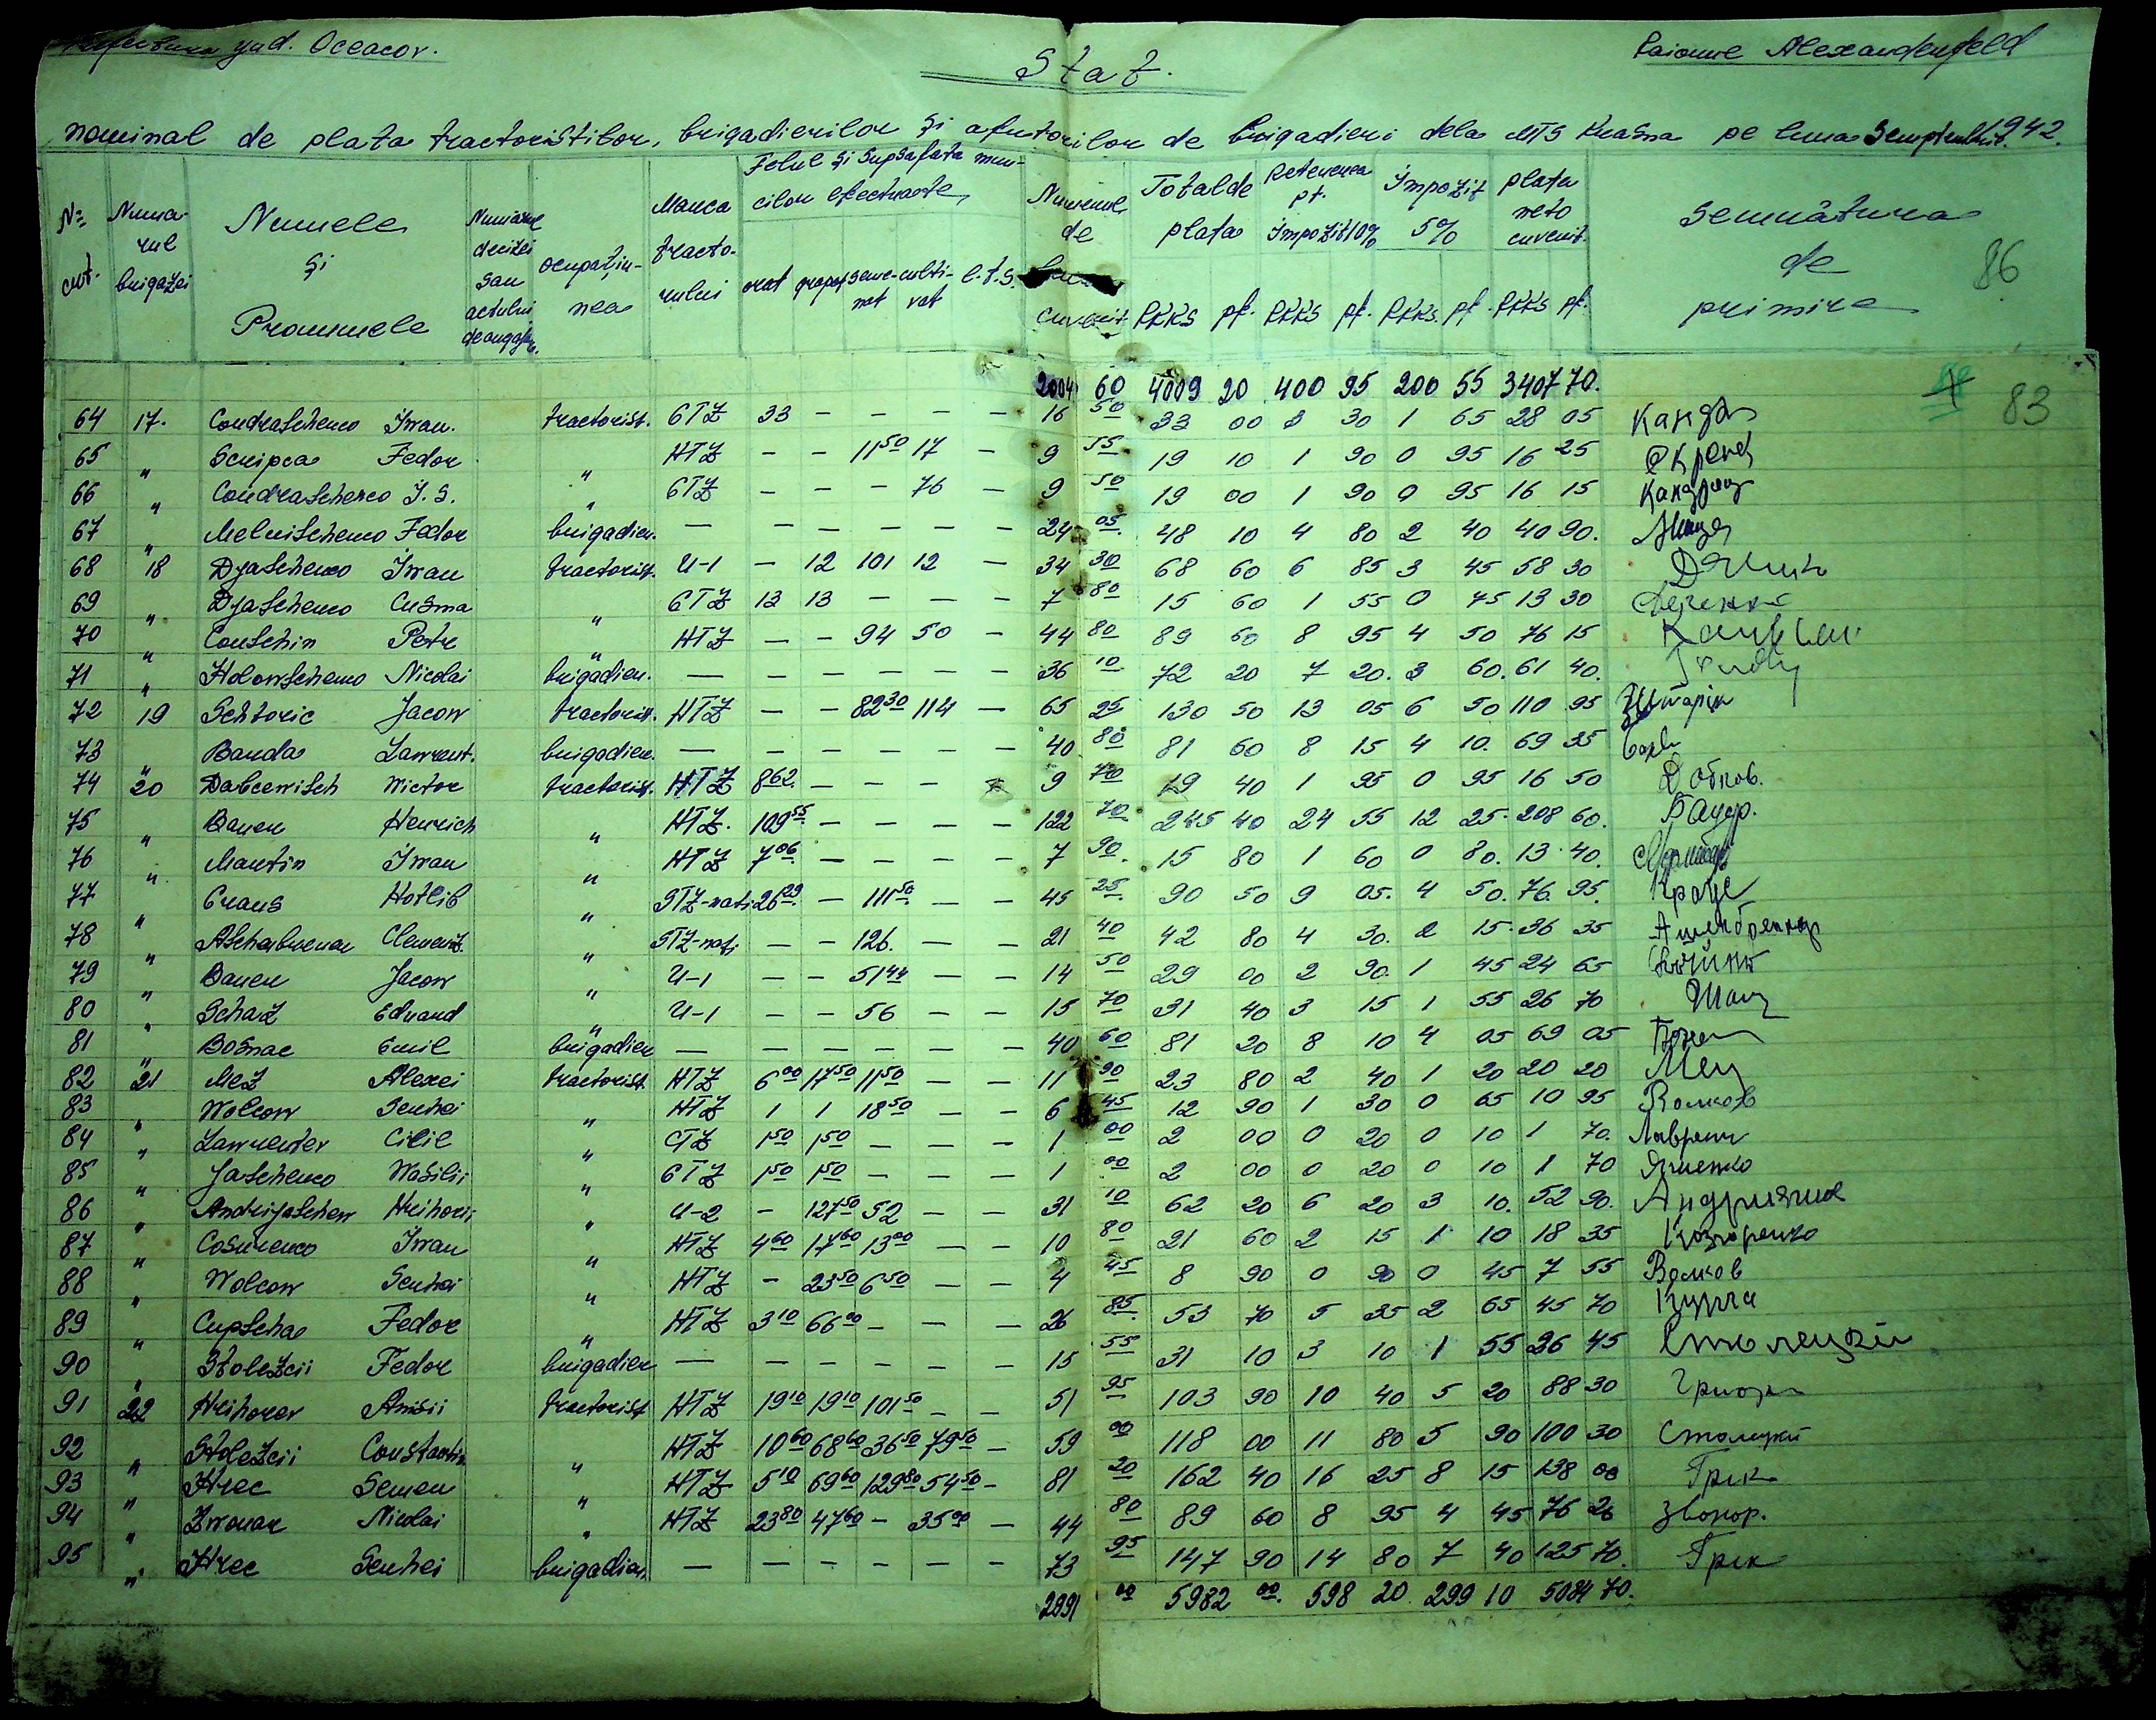 Prefectura jud. Oceacov.
Stat.
Raionul Alexanderfeld
nominal de plata tractoriștilor, brigadierilor și ajutorilor de brigadieri dela MTS pe luna Semptembrie 1942.
N= crt. | Numărul brigăzei | Numele și Pronumele | Numărul deciziei sau actului de angajare. | ocupațiunea | Marca tractorului | Felul și supsafata muncilor efectuate, arat grapat semenat cultivat C.T.S. | Numărul de cuvenit | Total de plata RKKS pf. | Retenerea pt. impozit 10% RKKS pf. | Impozit 5% RKKS. pf. | plata neto cuvenit. RKKS pf. | Semnătura de primire
86
2004 60 4009 20 400 95 200 55 3407 70.
83
64 17. Condraschenco Iwan. tractorist. CTZ 33 – – – – 16 50 33 00 3 30 1 65 28 05
65 " Scripca Fedor " HTZ – – 11 50 17 – 9 55 19 10 1 90 0 95 16 25
66 " Condraschenco I. S. " CTZ – – – 76 – 9 50 19 00 1 90 0 95 16 15
67 " Melnischenco Fedor brigadier. — – – – – – 24 05 48 10 4 80 2 40 40 90.
68 18 Djaschenco Iwan tractorist. U-1 – 12 101 12 – 34 30 68 60 6 85 3 45 58 30
69 " Djaschenco Cusma " CTZ 13 13 – – – 7 80 15 60 1 55 0 75 13 30
70 " Conschin Petr " HTZ – – 94 50 – 44 80 89 60 8 95 4 50 76 15
71 " Holowschenco Nicolai brigadier. — – – – – – 36 10 72 20 7 20. 3 60. 61 40.
72 19 Schtoric Jacow tractorist. HTZ – – 82 30 114 – 65 25 130 50 13 05 6 50 110 95
73 " Banda Lawrent. brigadier. — – – – – – 40 80 81 60 8 15 4 10. 69 35
74 20 Dabcewitsch Wictor tractorist. HTZ 862 – – – – 9 70 19 40 1 95 0 95 16 50
75 " Bauer Heinrich " HTZ. 109 55 – – – – 122 70 245 40 24 55 12 25. 208 60. Бауэр.
76 " Martin Iwan " HTZ 7 06 – – – – 7 90. 15 80 1 60 0 80. 13 40.
77 " Craus Hotlib " STZ-nati 26 29 – 111 50 – – 45 25 90 50 9 05. 4 50. 76. 95.
78 " Aschenbrenar Clement. " STZ-nati – – 126. – – 21 40 42 80 4 30. 2 15. 36 35 Ашенбренер
79 " Bauer Jacow " U-1 – – 51 44 – – 14 50 29 00 2 90. 1 45 24 65
80 " Schaz Eduard " U-1 – – 56 – – 15 70 31 40 3 15 1 55 26 70 Шац
81 " Bosnac Emil brigadier — – – – – – 40 60 81 20 8 10 4 05 69 05
82 21 Mez Alexei tractorist. HTZ 6 00 17 50 11 50 – – 11 90 23 80 2 40 1 20 20 20 Мец
83 " Wolcow Serhei " HTZ 1 1 18 50 – – 6 45 12 90 1 30 0 65 10 95 Волков
84 " Lawrenter Cilil " CTZ 1 50 1 50 – – – 1 00 2 00 0 20 0 10 1 70. Лаврент
85 " Jaschenco Wasilii " CTZ 1 50 1 50 – – – 1 00 2 00 0 20 0 10 1 70 Яшенко
86 " Andrijaschew Hrihorii " U-2 – 127 50 52 – – 31 10 62 20 6 20 3 10. 52 90. Андрияшев
87 " Cosurenco Iwan " HTZ 4 60 17 60 13 00 – – 10 80 21 60 2 15 1 10 18 35
88 " Wolcow Serhei " HTZ – 23 50 6 50 – – 4 45 8 90 0 90 0 45 7 55 Волков
89 " Cupscha Fedor " HTZ 3 10 66 00 – – – 26 85. 53 70 5 35 2 65 45 70 Купча
90 " Stolezcii Fedor brigadier — – – – – – 15 55 31 10 3 10 1 55 26 45 Столецкий
91 22 Hrihorar Anisii tractorist HTZ 19 10 19 10 101 50 – – 51 95 103 90 10 40 5 20 88 30
92 " Stolezcii Constantin " HTZ 10 60 68 60 36 50 79 50 – 59 00 118 00 11 80 5 90 100 30 Столецкий
93 " Hrec Semen " HTZ 5 10 69 60 129 80 54 50 – 81 20 162 40 16 25 8 15 138 00 Грек
94 " Zwonar Nicolai " HTZ 23 80 47 60 – 35 00 – 44 80 89 60 8 95 4 45 76 20 Звонор.
95 " Hrec Serhei brigadier — – – – – – 73 95 147 90 14 80 7 40 125 70. Грек
2991 00 5982 00. 598 20. 299 10 5084 70.